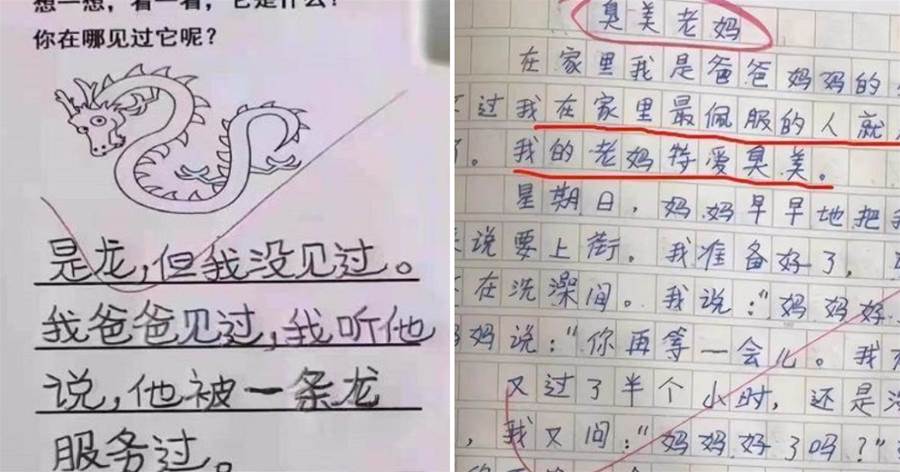 想一想，看一看，它是什么？
你在哪见过它呢？
是龙，但我没见过。
我爸爸见过，我听他
说，他被一条龙
服务过。
臭美老妈
在家里我是爸爸妈妈的
过我在家里最佩服的人就
。我的老妈特爱臭美。
星期日，妈妈早早地把
说要上街。我准备好了，
在洗澡间。我说：“妈妈好
妈说：“你再等一会儿。我
又过了半个小时，还是
，我又问：“妈妈好了吗？”